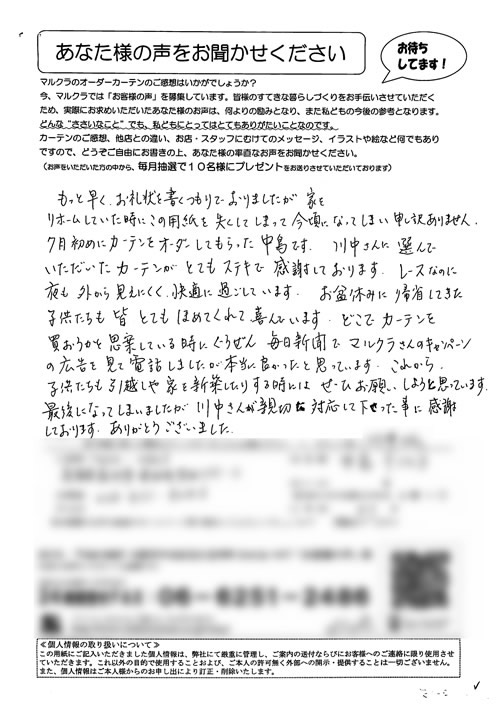 あなた様の声をお聞かせください
お待ち
してます！
マルクラのオーダーカーテンのご感想はいかがでしょうか？
今、マルクラでは「お客様の声」を募集しています。皆様のすてきな暮らしづくりをお手伝いさせていただく
ため、実際にお求めいただいたあなた様のお声は、何よりの励みとなり、また私どもの今後の参考となります。
どんな“ささいなこと”でも、私どもにとってはとてもありがたいことなのです。
カーテンのご感想、他店との違い、お店・スタッフにむけてのメッセージ、イラストや絵など何でもあり
ですので、どうぞご自由にお書きの上、あなた様の率直なお声をお聞かせください。
（お声をいただいた方の中から、毎月抽選で１０名様にプレゼントをお送りさせていただいております）
もっと早く、お礼状を書くつもりでおりましたが 家を
リホームしていた時にこの用紙を失くしてしまって今頃になってしまい申し訳ありません。
7月初めにカーテンをオーダーしてもらった中島です。 川中さんに選んで
いただいたカーテンがとてもステキで感謝しております。レースなのに
夜も外から見えにくく、快適に過ごしています。 お盆休みに帰省してきた
子供たちも皆とてもほめてくれて喜んでいます。どこでカーテンを
買おうかと思案している時にぐうぜん 毎日新聞でマルクラさんのキャンペーン
の広告を見て電話しましたが本当に良かったと思っています。これから、
子供たちも引越しや家を新築したりする時には ぜひお願いしようと思っています。
最後になってしまいましたが 川中さんが親切な対応して下さった事に感謝
しております。ありがとうございました。
06-6251-2486
≪個人情報の取り扱いについて≫
この用紙にご記入いただきました個人情報は、弊社にて厳重に管理し、ご案内の送付ならびにお客様へのご連絡に限り使用させ
ていただきます。これ以外の目的で使用することおよび、ご本人の許可無く外部への開示・提供することは一切ございません。
また、個人情報はご本人様からのお申し出により訂正・削除いたします。